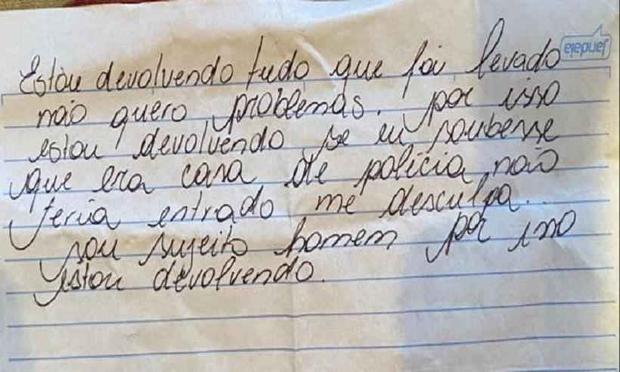 Estou devolvendo tudo que foi levado
não quero problemas. por isso
estou devolvendo se eu soubesse
que era casa de policia não
teria entrado me desculpa..
sou sujeito homem por isso
estou devolvendo.
jandaia